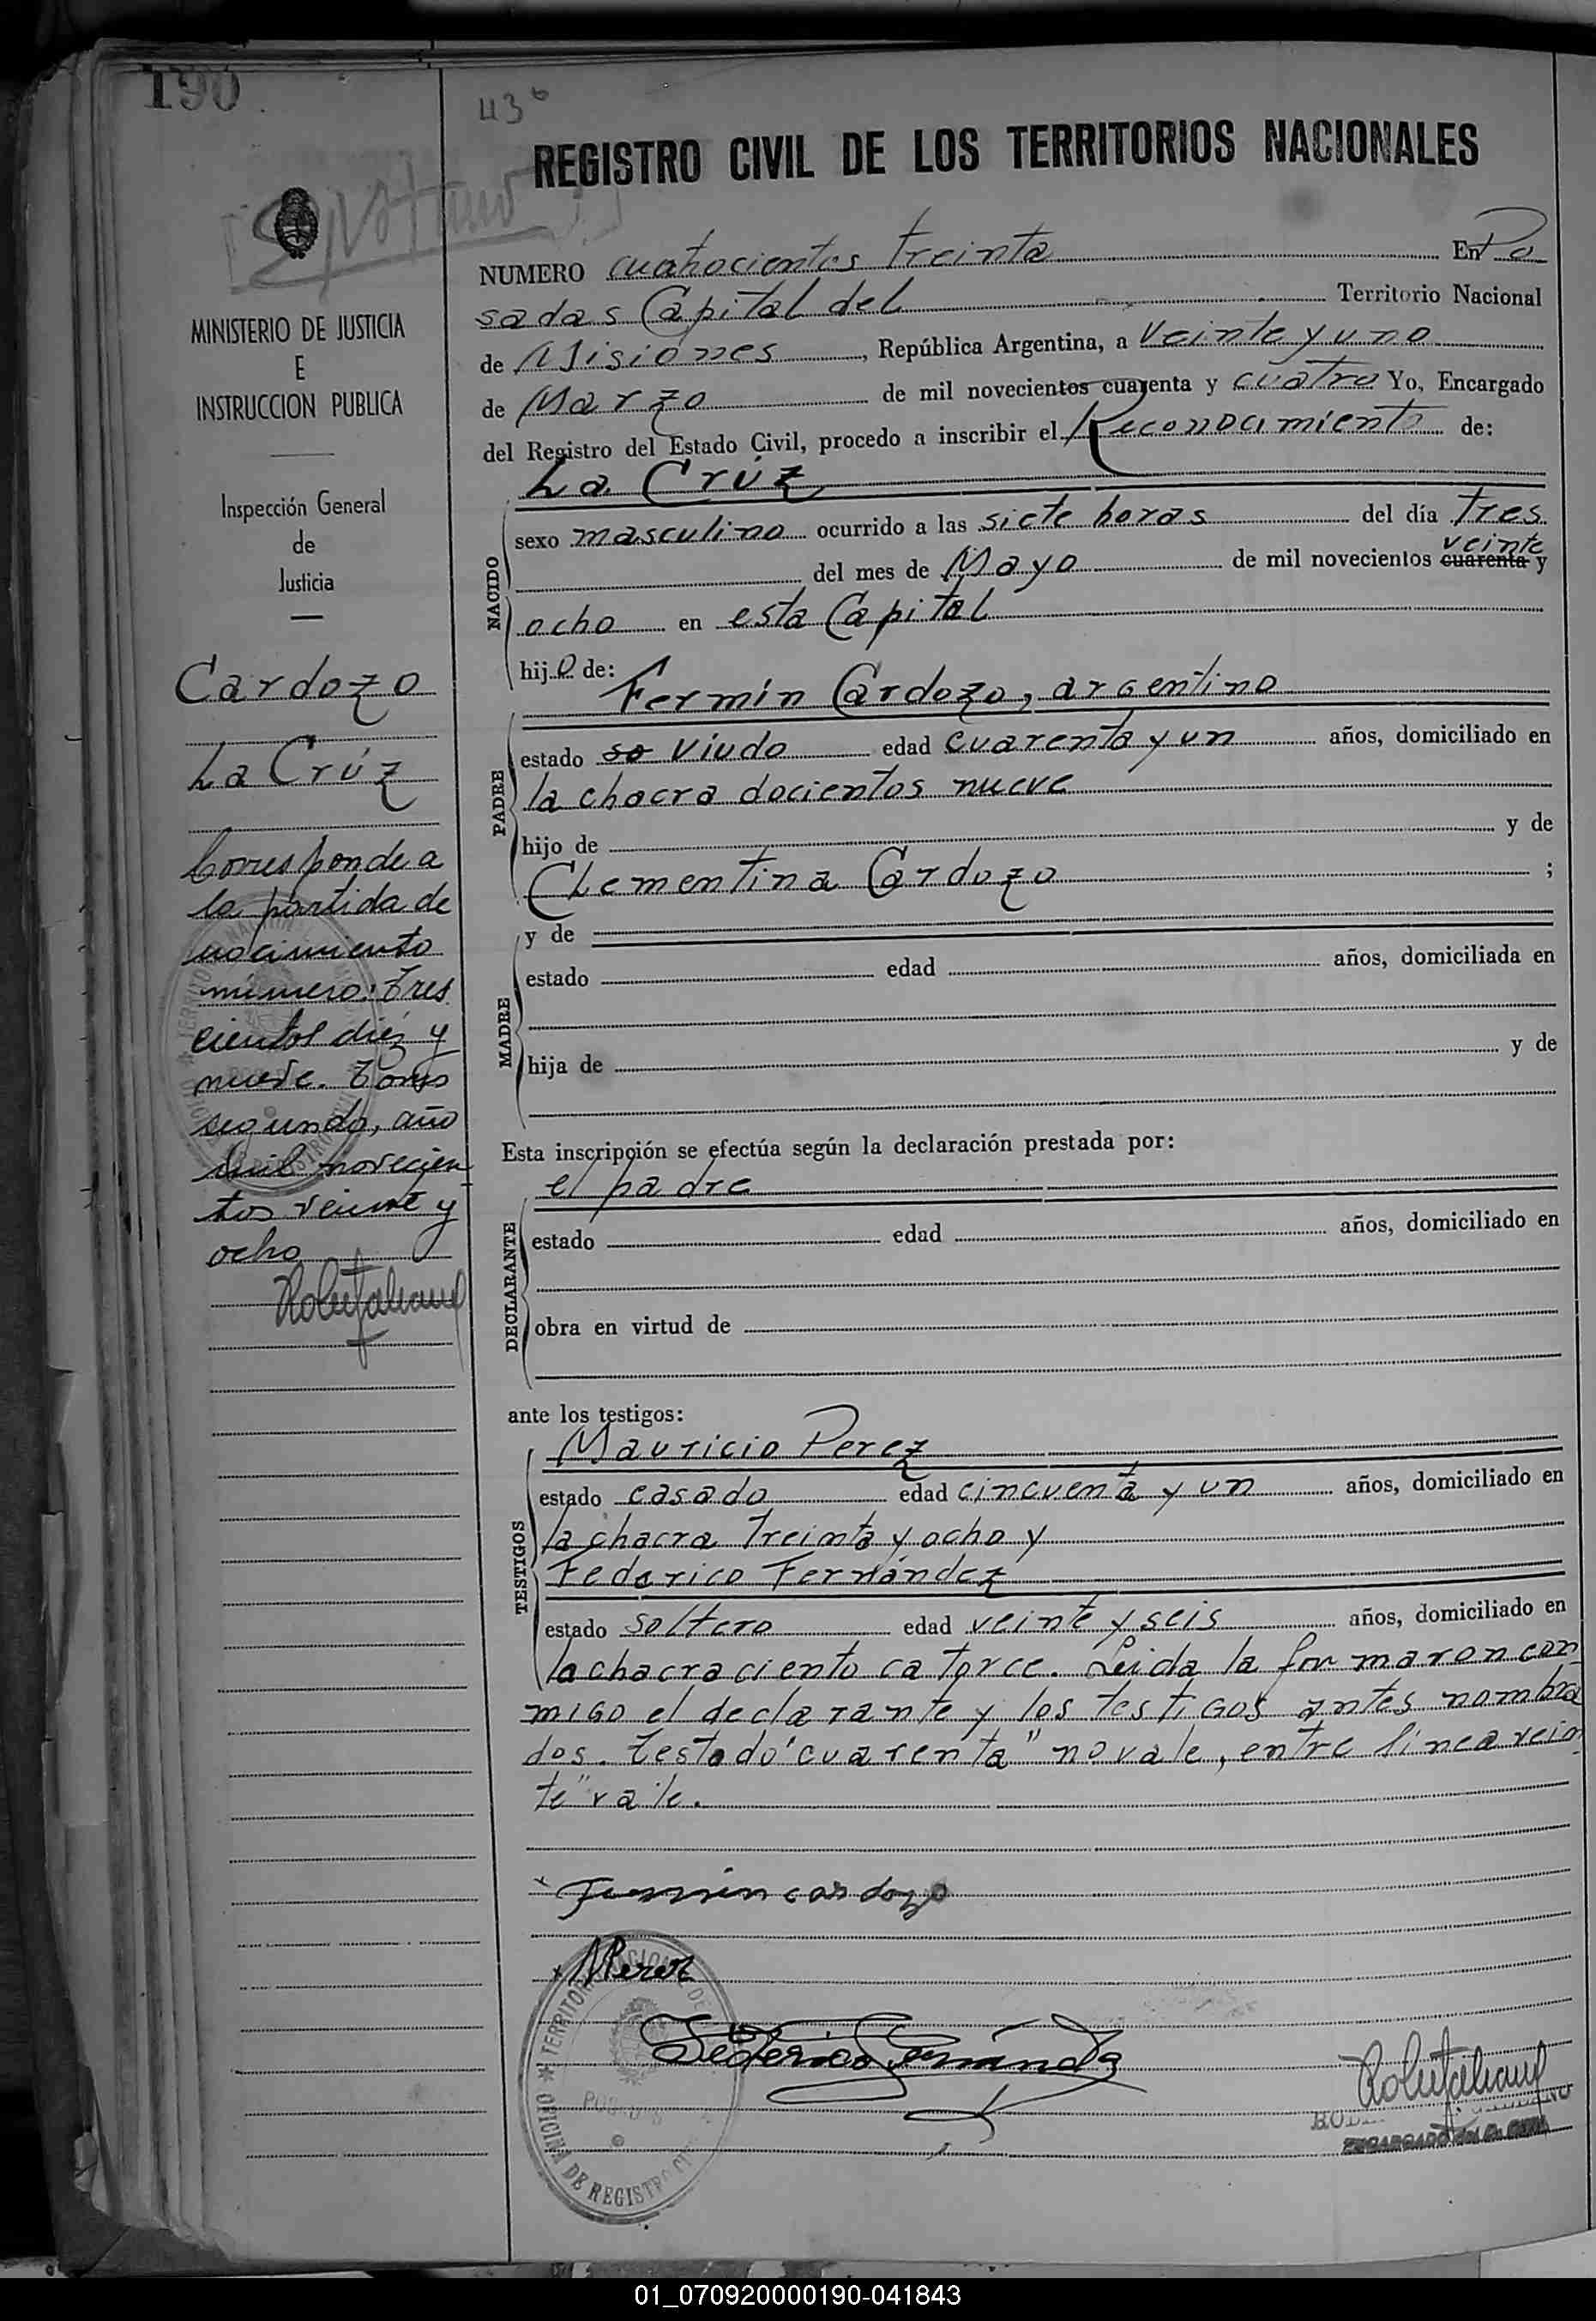 190
430
REGISTRO CIVIL DE LOS TERRITORIOS NACIONALES
NUMERO cuatrocientos treinta En Po
sadas Capital del Territorio Nacional
de Misiones, República Argentina, a veinte y uno
de Marzo de mil novecientos cuarenta y cuatro Yo, Encargado
del Registro del Estado Civil, procedo a inscribir el Reconocimiento de:
La Crúz
NACIDO
sexo masculino ocurrido a las siete horas del día tres
veinte
del mes de Mayo de mil novecientos cuarenta y
ocho en esta Capital
hijo de:
Fermín Cardozo, argentino
PADRE
estado so viudo edad cuarenta y un años, domiciliado en
la chacra docientos nueve
hijo de y de
Clementina Cardozo ;
y de
MADRE
estado edad años, domiciliada en
hija de y de
Esta inscripción se efectúa según la declaración prestada por:
el padre
DECLARANTE
estado edad años, domiciliado en
obra en virtud de
ante los testigos:
Mauricio Perez
TESTIGOS
estado casado edad cincuenta y un años, domiciliado en
la chacra treinta y ocho y
Federico Fernández
estado soltero edad veinte y seis años, domiciliado en
la chacra ciento catorce. Leida la firmaron con
migo el declarante y los testigos antes nombra
dos. testado "cuarenta" no vale, entre linea vein
te" vale.
Fermin cardozo
MPerez
Federico Fernández
ENCARGADO DEL R. CIVIL
OFICINA DE REGISTRO CIVIL
TERRITORIO NACIONAL DE
POSADAS
MINISTERIO DE JUSTICIA
E
INSTRUCCION PUBLICA
Inspección General
de
Justicia
Cardozo
La Crúz
Corresponde a
la partida de
nacimiento
número: tres
cientos diéz y
nueve. Tomo
segundo, año
mil novecien
tos veinte y
ocho
01_070920000190-041843